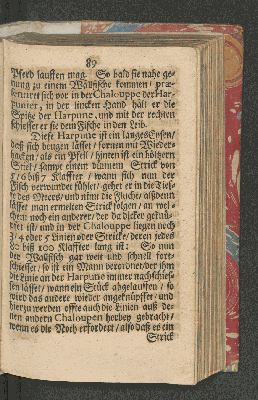 89
Pferd lauffen mag. So bald sie nahe ge-
nung zu einem Wallfische kommen / præ-
sentiret sich vor in der Chalouppe der Har-
punier, in der lincken Hand hält er die
Spitze der Harpune, und mit der rechten
schiesset er sie dem Fische in den Leib.
Diese Harpune ist ein langes Eysen /
daß sich beugen lässet / fornen mit Wieder-
hacken / als ein Pfeil / hinten ist ein höltzern
Stiel / sampt einem dünnem Strick von
5 / 6 biß 7 Klaffter / wann sich nun der
Fisch verwundet fühlet / gehet er in die Tief-
fe des Meeres / und nimt die Flucht / alsdenn
lässet man ermelten Strick folgen / an wel-
chem noch ein anderer / der da dicker geknüp-
fet ist / und in der Chalouppe liegen noch
3 / 4 oder 5 Linien oder Stricke / deren jedes
80 biß 100 Klaffter lang ist: So nun
der Wallfisch gar weit und schnell fort-
schiesset / so ist ein Mann verordnet / der ihm
die Linie an der Harpune immer nachschies-
sen lässet / wann ein Stück abgelauffen / so
wird das andere wieder angeknüpffet / und
hierzu werden offte auch die Linien auß de-
nen andern Chaloupen herbey gebracht /
wenn es die Noth erfordert / also daß es ein
Strick